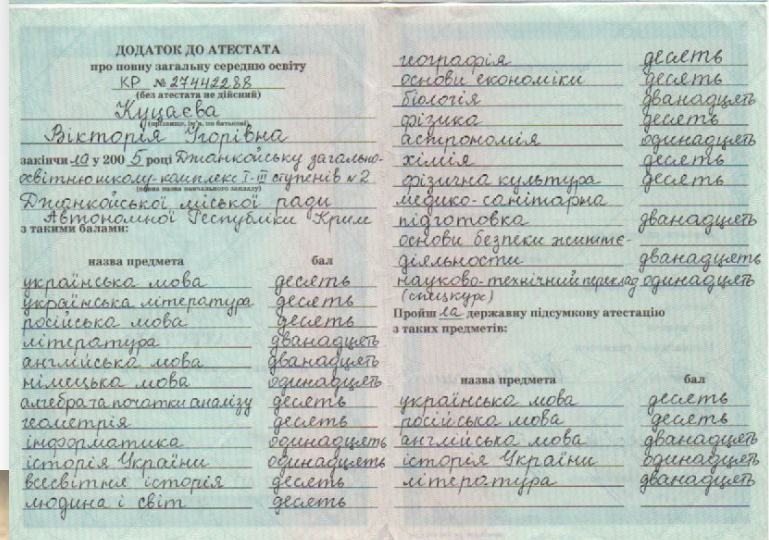 ДОДАТОК ДО АТЕСТАТА
про повну загальну середню освіту
КР № 27442288
(без атестата не дійсний)
Куцаєва
(прізвище, ім'я, по батькові)
Вікторія Ігорівна
закінчила у 2005 році Джанкойську загально-
освітню школу-комплекс І-ІІІ ступенів №2
(повна назва навчального закладу)
Джанкойської міської ради
Автономної Республіки Крим
з такими балами:
назва предмета бал
українська мова десять
українська література десять
російська мова десять
література дванадцять
англійська мова дванадцять
німецька мова одинадцять
алгебра та початки аналізу десять
геометрія десять
інформатика одинадцять
історія України одинадцять
всесвітня історія десять
людина і світ десять
географія десять
основи економіки десять
біологія дванадцять
фізика десять
астрономія одинадцять
хімія десять
фізична культура десять
медико-санітарна
підготовка дванадцять
основи безпеки життє-
діяльности дванадцять
науково-технічний переклад одинадцять
(спецкурс)
Пройшла державну підсумкову атестацію
з таких предметів:
назва предмета бал
українська мова десять
російська мова десять
англійська мова дванадцять
історія України одинадцять
література дванадцять